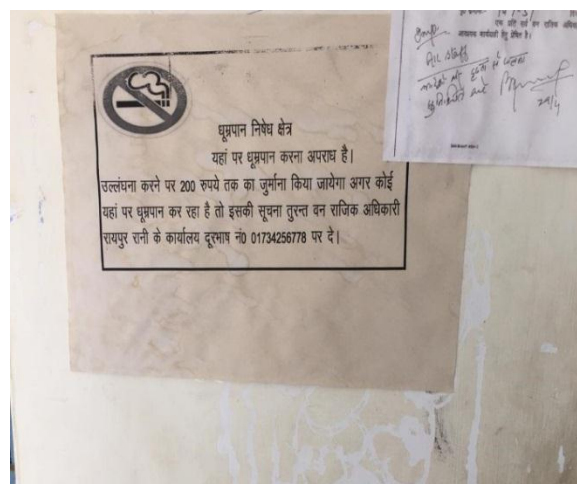 धूम्रपान निषेध क्षेत्र
यहां पर धूम्रपान करना अपराध है|
उल्लंघना करने पर 200 रुपये तक का जुर्माना किया जायेगा अगर कोई
यहां पर धूम्रपान कर रहा है तो इसकी सूचना तुरन्त वन राजिक अधिकारी
रायपुर रानी के कार्यालय दूरभाष नं0 01734256778 पर दे|
एवं वन राजिक
आवश्यक कार्यवाही हेतु प्रेषित है।
29/4